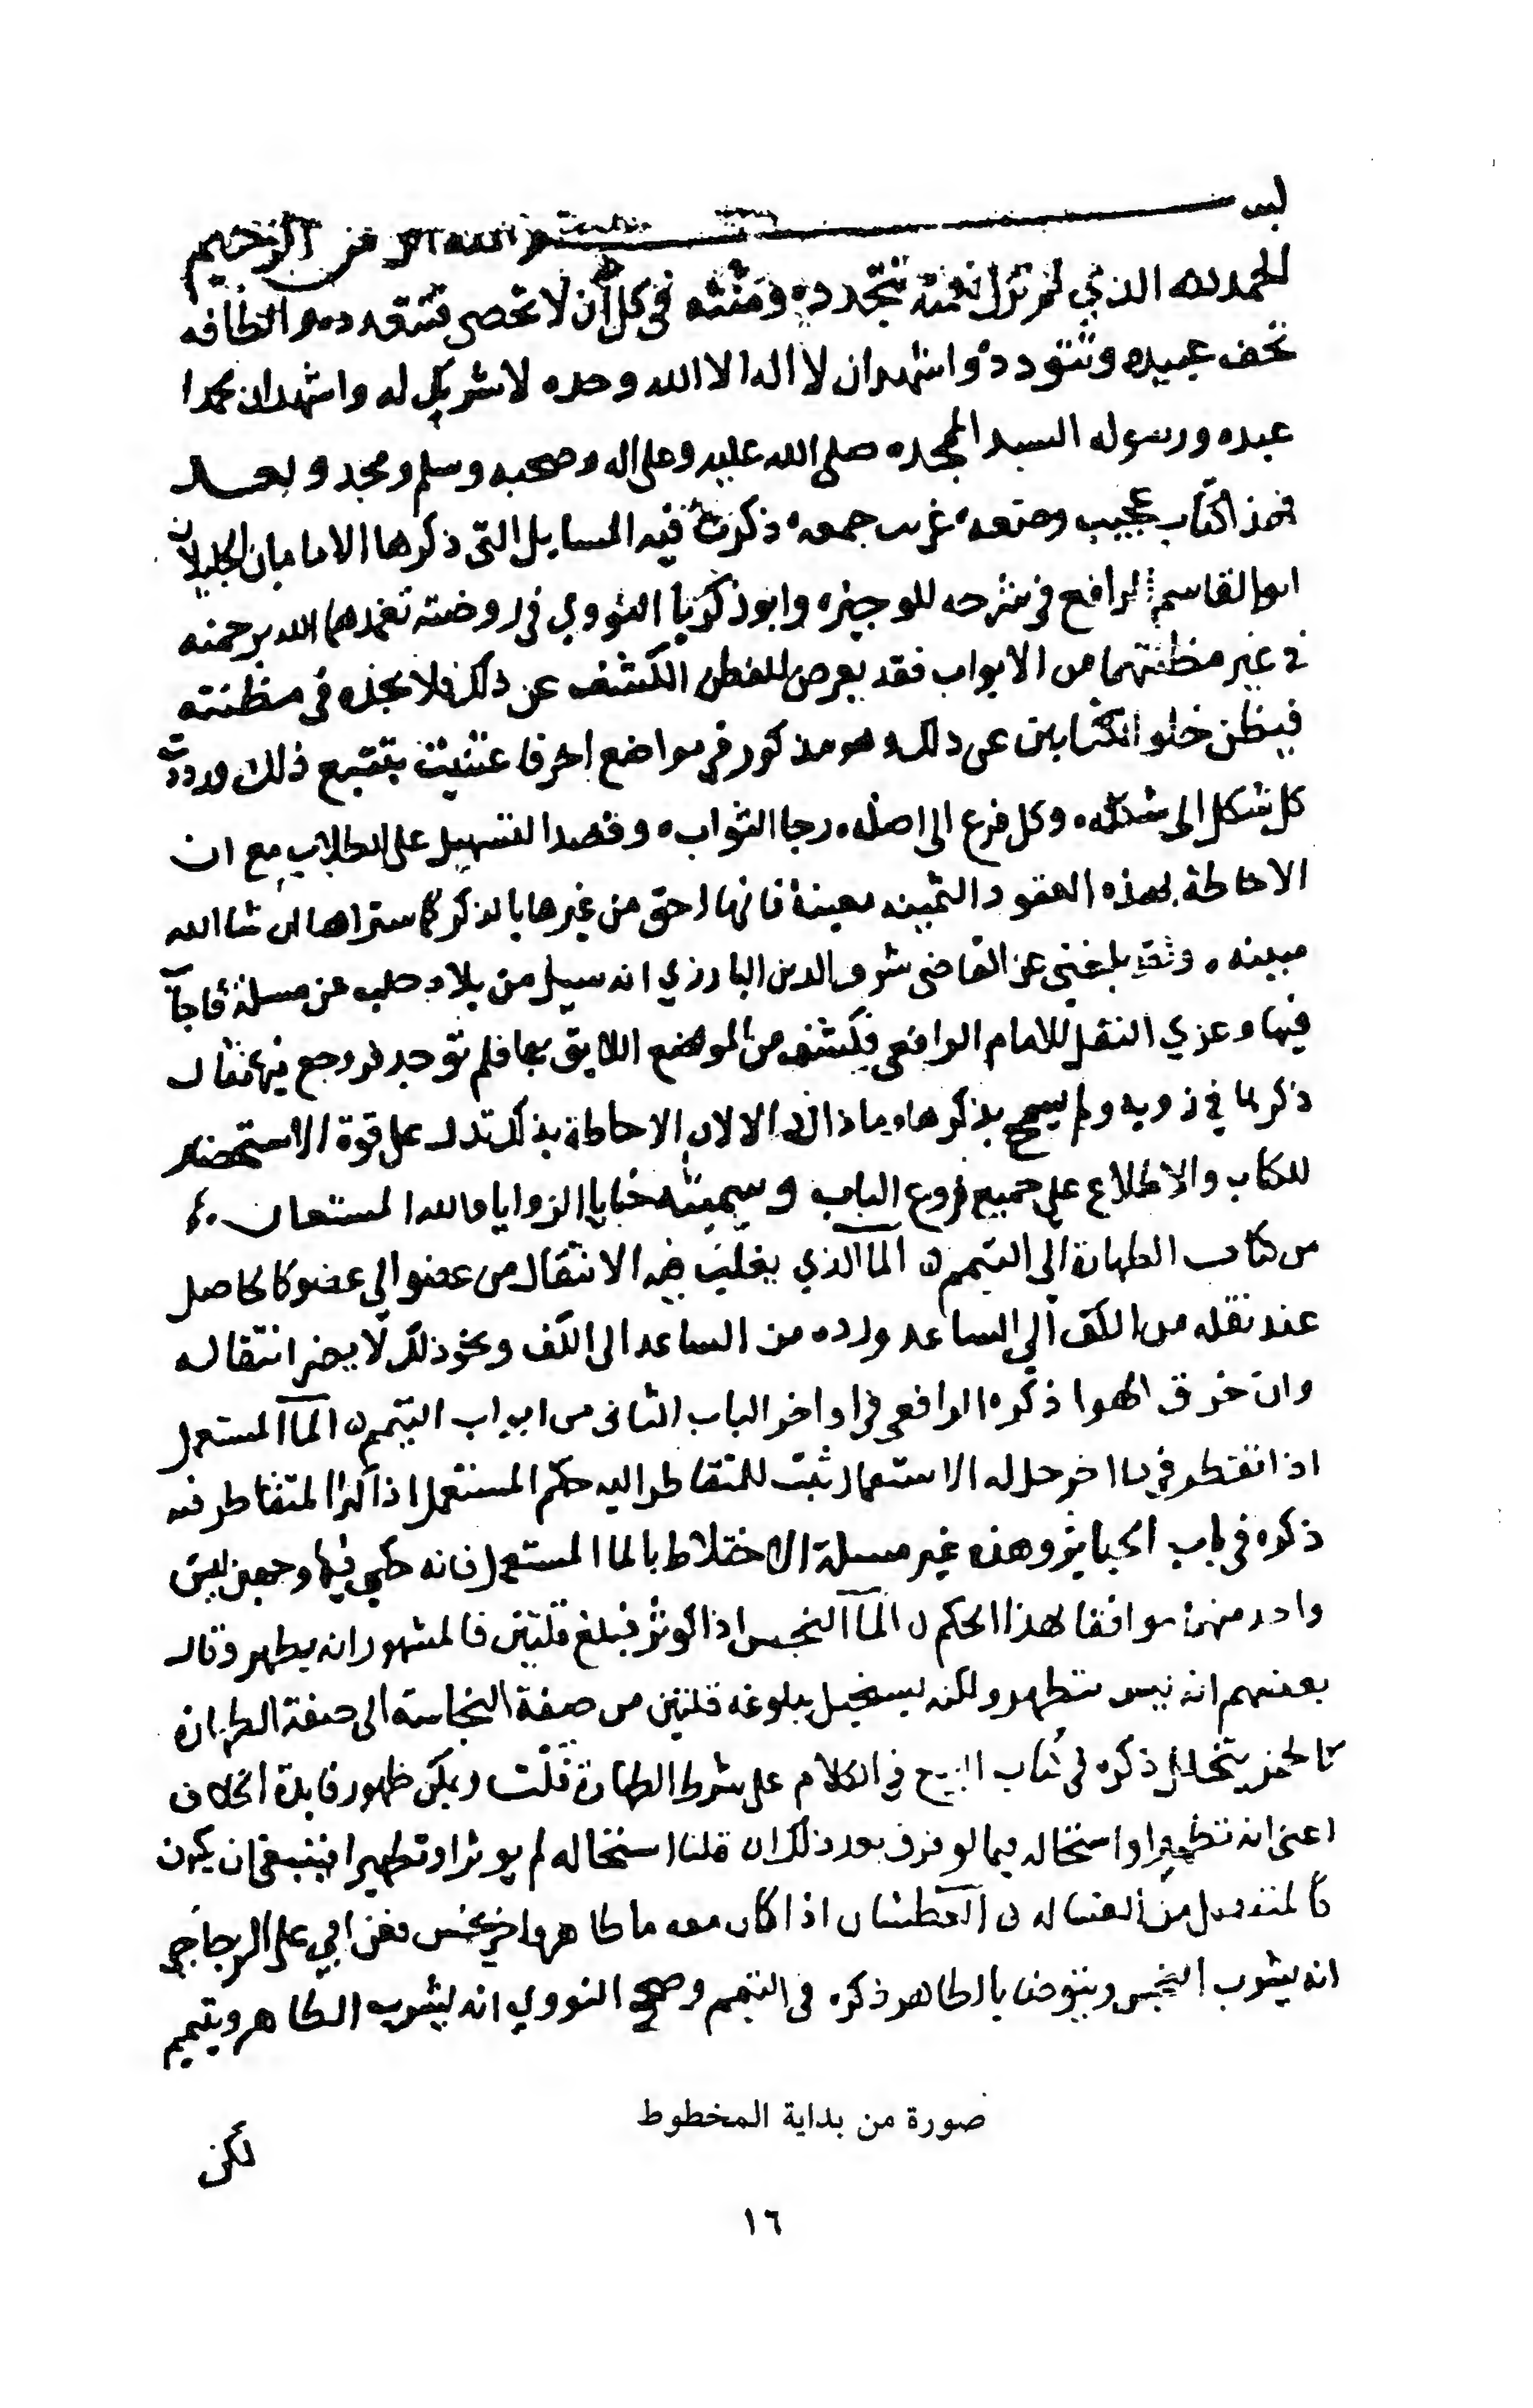 بسم الله الرحمن الرحيم
الحمد لله الذي لم تزل نعمه تتجدده ومننه في كل آن لا تحصى فتتعدد والطافه
تحف عبيده وتتودد واشهد ان لا اله الا الله وحده لا شريك له واشهد ان محمدا
عبده ورسوله السيد الممجده صلى الله عليه وعلى اله وصحبه وسلم ومجد وبعد
فهذا كتاب عجيب وضعه غريب جمعه ذكرت فيه المسايل التي ذكرها الامامان الجليلان
ابو القاسم الرافعي في شرحه للوجيزه وابو زكريا النووي في روضته تغمدهما الله برحمته
في غير مظنتهما من الابواب فقد يعرض للفطن الكشف عن ذلك فلا يجده في مظنته
فيظن خلو الكتابين عن ذلك وهو مذكور في مواضع اخر فاعتنيت بتتبع ذلك ورددت
كل شكل الى شكله وكل فرع الى اصله رجا الثواب وقصدا لتسهيل على الطلاب مع ان
الاحاطة بهذه العقود الثمينه معينة فانها احق من غيرها بالذكر كما ستراها ان شا الله
مبينه وقد بلغني عن القاضي شرف الدين البارزي انه سيل من بلاد حلب عن مسلة فاجاب
فيها وعزي النقل للامام الرافعي فكشف من الموضع اللايق بها فلم توجد فروجع فيها فقال
ذكرها في زويه ولم يسمح بذكرها وما ذاك الا لان الاحاطة بذلك تدل على قوة الاستحضار
للكتاب والاطلاع على جميع فروع الباب وسميته خبايا الزوايا والله المستعان
من كتاب الطهارة الى التيمم الما الذي يغلب فيه الانتقال من عضو الى عضو كالحاصل
عند نقله من الكف الى الساعد ورده من الساعد الى الكف ونحو ذلك لا يضر انتقاله
وان خرق الهوا ذكره الرافعي في اواخر الباب الثاني من ابواب التيمم الما المستعمل
اذا تقطر في ما اخر حل له الاستعمال ثبت للمتقاطر اليه حكم المستعمل اذا كثر المتقاطر فيه
ذكره في باب الجنايز وهذه غير مسلة الاختلاط بالما المستعمل فانه حكي فيها وجهين ليس
واحد منهما موافقا لهذا الحكم الما النجس اذا كوثر فبلغ قلتين فالمشهور انه يطهر وقال
بعضهم انه ليس بتطهير ولكنه يستحيل ببلوغه قلتين من صفة النجاسة الى صفة الطهارة
كالخمر يتخلل ذكره في كتاب البيع في الكلام على شرط الطهارة قلت ويمكن ظهور فايدة الخلاف
اعني انه تطهير او استحاله فيما لو فرق بعد ذلك ان قلنا استحاله لم يوثر او تطهير فينبغي ان يكون
كالمنفصل من الغساله العطشان اذا كان معه ما طاهر واخر نجس فعن ابي علي الزجاجي
انه يشرب النجس ويتوضا بالطاهر ذكره في التيمم وصحح النووي انه يشرب الطاهر ويتيمم
لكن
صورة من بداية المخطوط
١٦